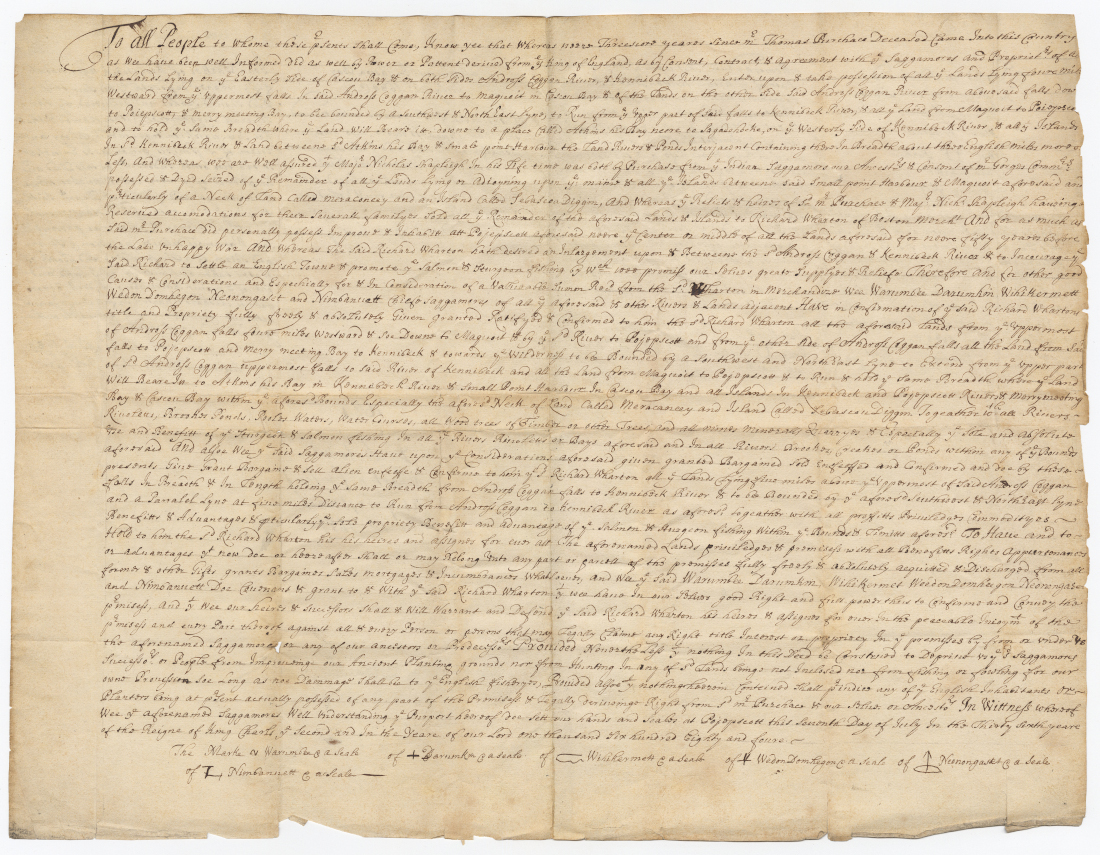 To all People to whome these psents Shall Come, Know yee that Whereas neere Threescore yeares Since mr Thomas Purchase Deceased Came Into this Country
as wee have been well Informed Did as well by Power or Pattent derived from ye King of England, as by Consent, Contract & Agreement with ye Saggamores and Propriet's of all
the Lands Lying on ye Easterly side of Cascon Bay & on both sides Andross Coggan River, & Kennebeck River, Enter upon & take possession of all ye Lands Lying foure mile
Westward from ye uppermost falls In said Andross Coggan River to Maquoit in Cascon Bay & of the Lands on the other side Said Andross Coggan River from above said falls Down
to Pojepscott & merry meeting Bay, to be bounded by a Southwest & North East Lyne, to Run from ye upper part of Said falls to Kennebeck River, & all ye Land from Maquoit to Pojepscott
and to hold ye Same Breadth where ye Land Will Beare it, Downe to a place Called Atkins his Bay neere to Sagadehoke, on ye Westerly Side of Kennebeck River, & all ye Islands
In sd Kennebeck River & Land betweene sd Atkins his Bay & small point Harbour the Land Rivers & Ponds Interjacent Containing there In Breadth about three English miles more or
Less, And whereas wee are Well assured yt Majr Nicholas Shapleigh In his Life time was both by Purchase from ye Indian Saggamors our Ancest's & Consent of mr Gorges Commis's
possessed & Dyed Seized of ye Remainder of all ye Lands Lying or Adjoyning upon ye maine & all ye Islands betweene Said Small point Harbour & Maquoit aforesaid and
pticularly of a Neck of Land Called Meraconeey and an Island Called Sebascoa Diggin, And Whereas ye Relicts & heires of Sd mr Purchase & Majr Nich: Shapleigh haveing
Reserved accomodations for their Severall familyes Sold all ye Remainder of the aforesaid Lands & Islands to Richard Wharton of Boston Mercht And for as much as
Said mr Purchase did personally possess Improve & Inhabitt att Pojepscott aforesaid neere ye Center or middle of all the Lands aforesaid for neere fifty yeares before
the Late Unhappy War, And Whereas The Said Richard Wharton hath desired an Inlargement upon & Betweene the sd Andross Coggan & Kennebeck River & to Incourage ye
Said Richard to Settle an English Towne & promote ye Salmon & Sturgeon fishing by Wch wee promiss our Selves great Supplyes & Reliefe Therefore And for other good
Causes & Considerations and Especially for & In Consideration of a Valluable Summ Recd from the sd Wharton in Merchandize Wee Warumbee Darumkin Wihikermett
Wedon Domhegon Neonongasset and Nimbanuett Cheife Saggamores of all ye aforesaid & other Rivers & Lands adjacent Have in Confirmation of ye said Richard Whartons
title and Propriety fully freely & absolutely Given granted Ratifyed & Confirmed to him the sd Richard Wharton all the aforesaid Lands from ye uppermost
of Andross Coggan falls foure miles Westward & soe Downe to Maquoit & by ye sd River to Pojepscott and from ye other side of Andross Coggan falls all the Land from Said
falls to Pojepscott and Merry meeting Bay to Kennebeck & towards ye Wilderness to be Bounded by a Southwest and North East Lyne to Extend from ye upper part
of sd Andross Coggan uppermost falls to said River of Kennebeck and all the Land from Maquoit to Pojepscott & to Run & hold ye Same Breadth where ye Land
Will Beare it to Atkins his Bay in Kennebeck River & Small Point Harbour In Cascon Bay and all Islands In Kennebeck and Pojepscott Rivers & Merry meeting
Bay & Cascon Bay within ye afores'd Bounds Especially the afores'd Neck of Land Called Meraconeey and Island Called Sebascoa Diggin Togeather with all Rivers
Rivoletts, Brookes Ponds, Pooles Water, Water Courses, all Wood trees of Timber or other Trees, and all mines Mineralls Quarryes & Especially ye Sole and absolute
use and Benefitt of ye Sturgeon & Salmon fishing In all ye Rivers Rivoletts or Bays aforesaid and In all Rivers Brookes Creekes or Ponds within any of ye Bounds
aforesaid And alsoe Wee ye Said Saggamores Have upon ye Considerations aforesaid given granted Bargained Sold Enfeoffed and Confirmed and Doe by these
presents Give Grant Bargaine & Sell Alien enfeoffe & Confirme to him ye sd Richard Wharton all ye Lands Lying five miles above ye Uppermost of Said Andross Coggan
falls In Breadth & In Length holding ye Same Breadth from Andross Coggan falls to Kennebeck River & to be Bounded by ye afores'd Southwest & North East Lyne
and a Parralel Lyne at five miles Distance to Run from Andross Coggan to Kennebeck River as afores'd Togeather with all proffitts Priviledges Commodityes
Benefitts & Advantages & pticularly ye Sole propriety Benefitt and advantage of ye Salmon & Sturgeon fishing Within ye Bounds & Limitts afores'd To Have and to
Hold to him the sd Richard Wharton his his heires and assignes for ever all The aforenamed Lands priviledges & premises with all benefitts Rights Appurtenances
or advantages of now Doe or hereafter Shall or may Belong Unto any part or parcell of the premises fully freely & absolutely acquitted & Discharged from all
former & other Gifts grants Bargaines Sales Mortgages & Incumbrances Whatsoever, and Wee ye Said Warumbee Darumkin, Wihikermet Weedon Domhegon Neonongasset
and Nimbanuett Doe Covenant & grant to & With ye Said Richard Wharton yt wee have in our Selves good Right and full power these to Confirme and Convey the
pmises, And yt wee our heires & Successors Shall & Will Warrant and Defend ye Said Richard Wharton his heires & assignes for ever In the peaceable Injoymt of the
pmises and every Part thereof against all & every Person or persons that may Legally Claime any Right title Interest or propriety In ye premises by from or under us
the aforenamed Saggamores or any of our ancestors or Predecess's Provided Nevertheless yt nothing In this Deed be Construed to Deprive us ye sd Saggamores
Success's or People from Improving our Ancient Planting grounds nor from Hunting In any of sd Lands being not Inclosed nor from fishing or fowling for our
owne Provission Soe Long as noe Dammage Shall be to ye English fisheryes, Provided allsoe yt nothing herein Conteined Shall pjudice any of ye English Inhabitants or
Planters being at psent actually possest of any part of the Premises & Legally Deriveing Right from sd mr Purchase & our Selves or Ancest's In Witness whereof
Wee ye aforenamed Saggamores Well Understanding ye Purport hereof Doe Sett our hands and Seales at Pojepscott this Seventh Day of July In the Thirty Sixth yeare
of the Reigne of King Charls ye Second and In the Yeare of our Lord one thousand Six hundred Eighty and foure
The Marke of Warumbee & a Seale of Darumkin & a Seale of Wihikermett & a Seale of Wedon Domhegon & a Seale of Neonongasset & a Seale
of Nimbanuett & a Seale